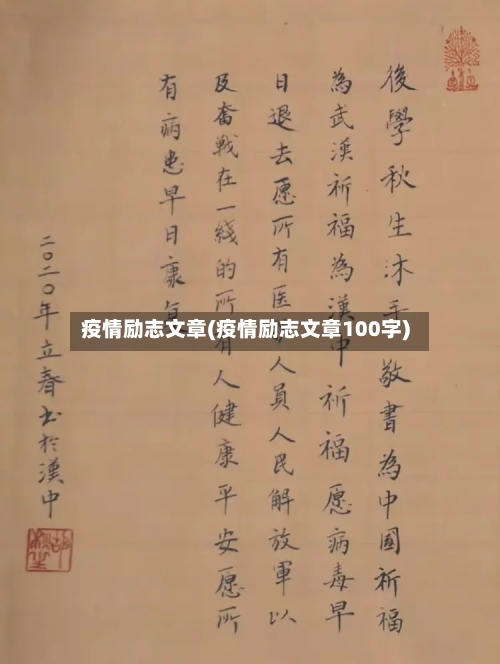 後學秋生沐手敬書為中国祈福
為武漢祈福為漢中祈福愿病毒早
日退去愿所有医人員人民解放軍以
及奮戰在一綫的所有人健康平安愿所
有病患早日康
二〇二〇年立春书於漢中
疫情励志文章(疫情励志文章100字)